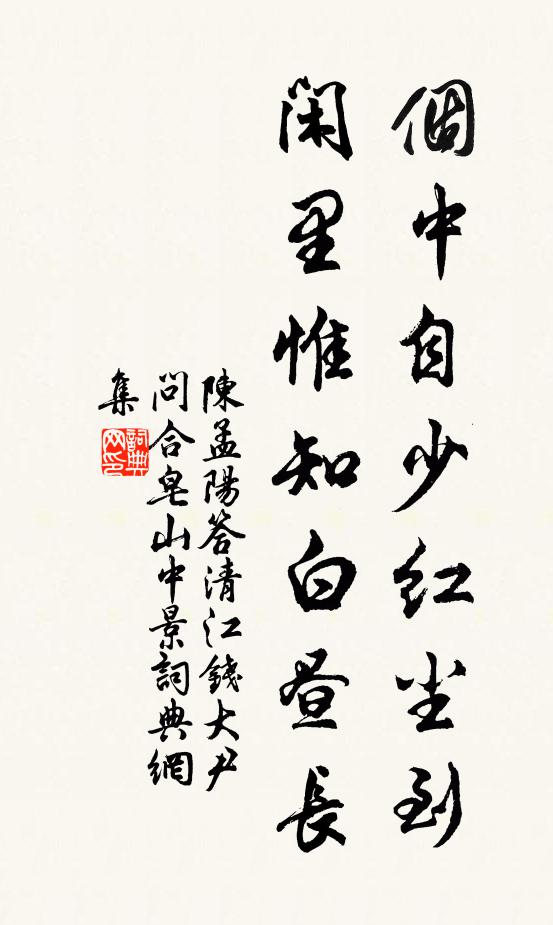 個中自少红尘到
閑里惟知白昼長
陳孟陽答清江錢大尹
問合皂山中景詞典網
集
詞典
网印